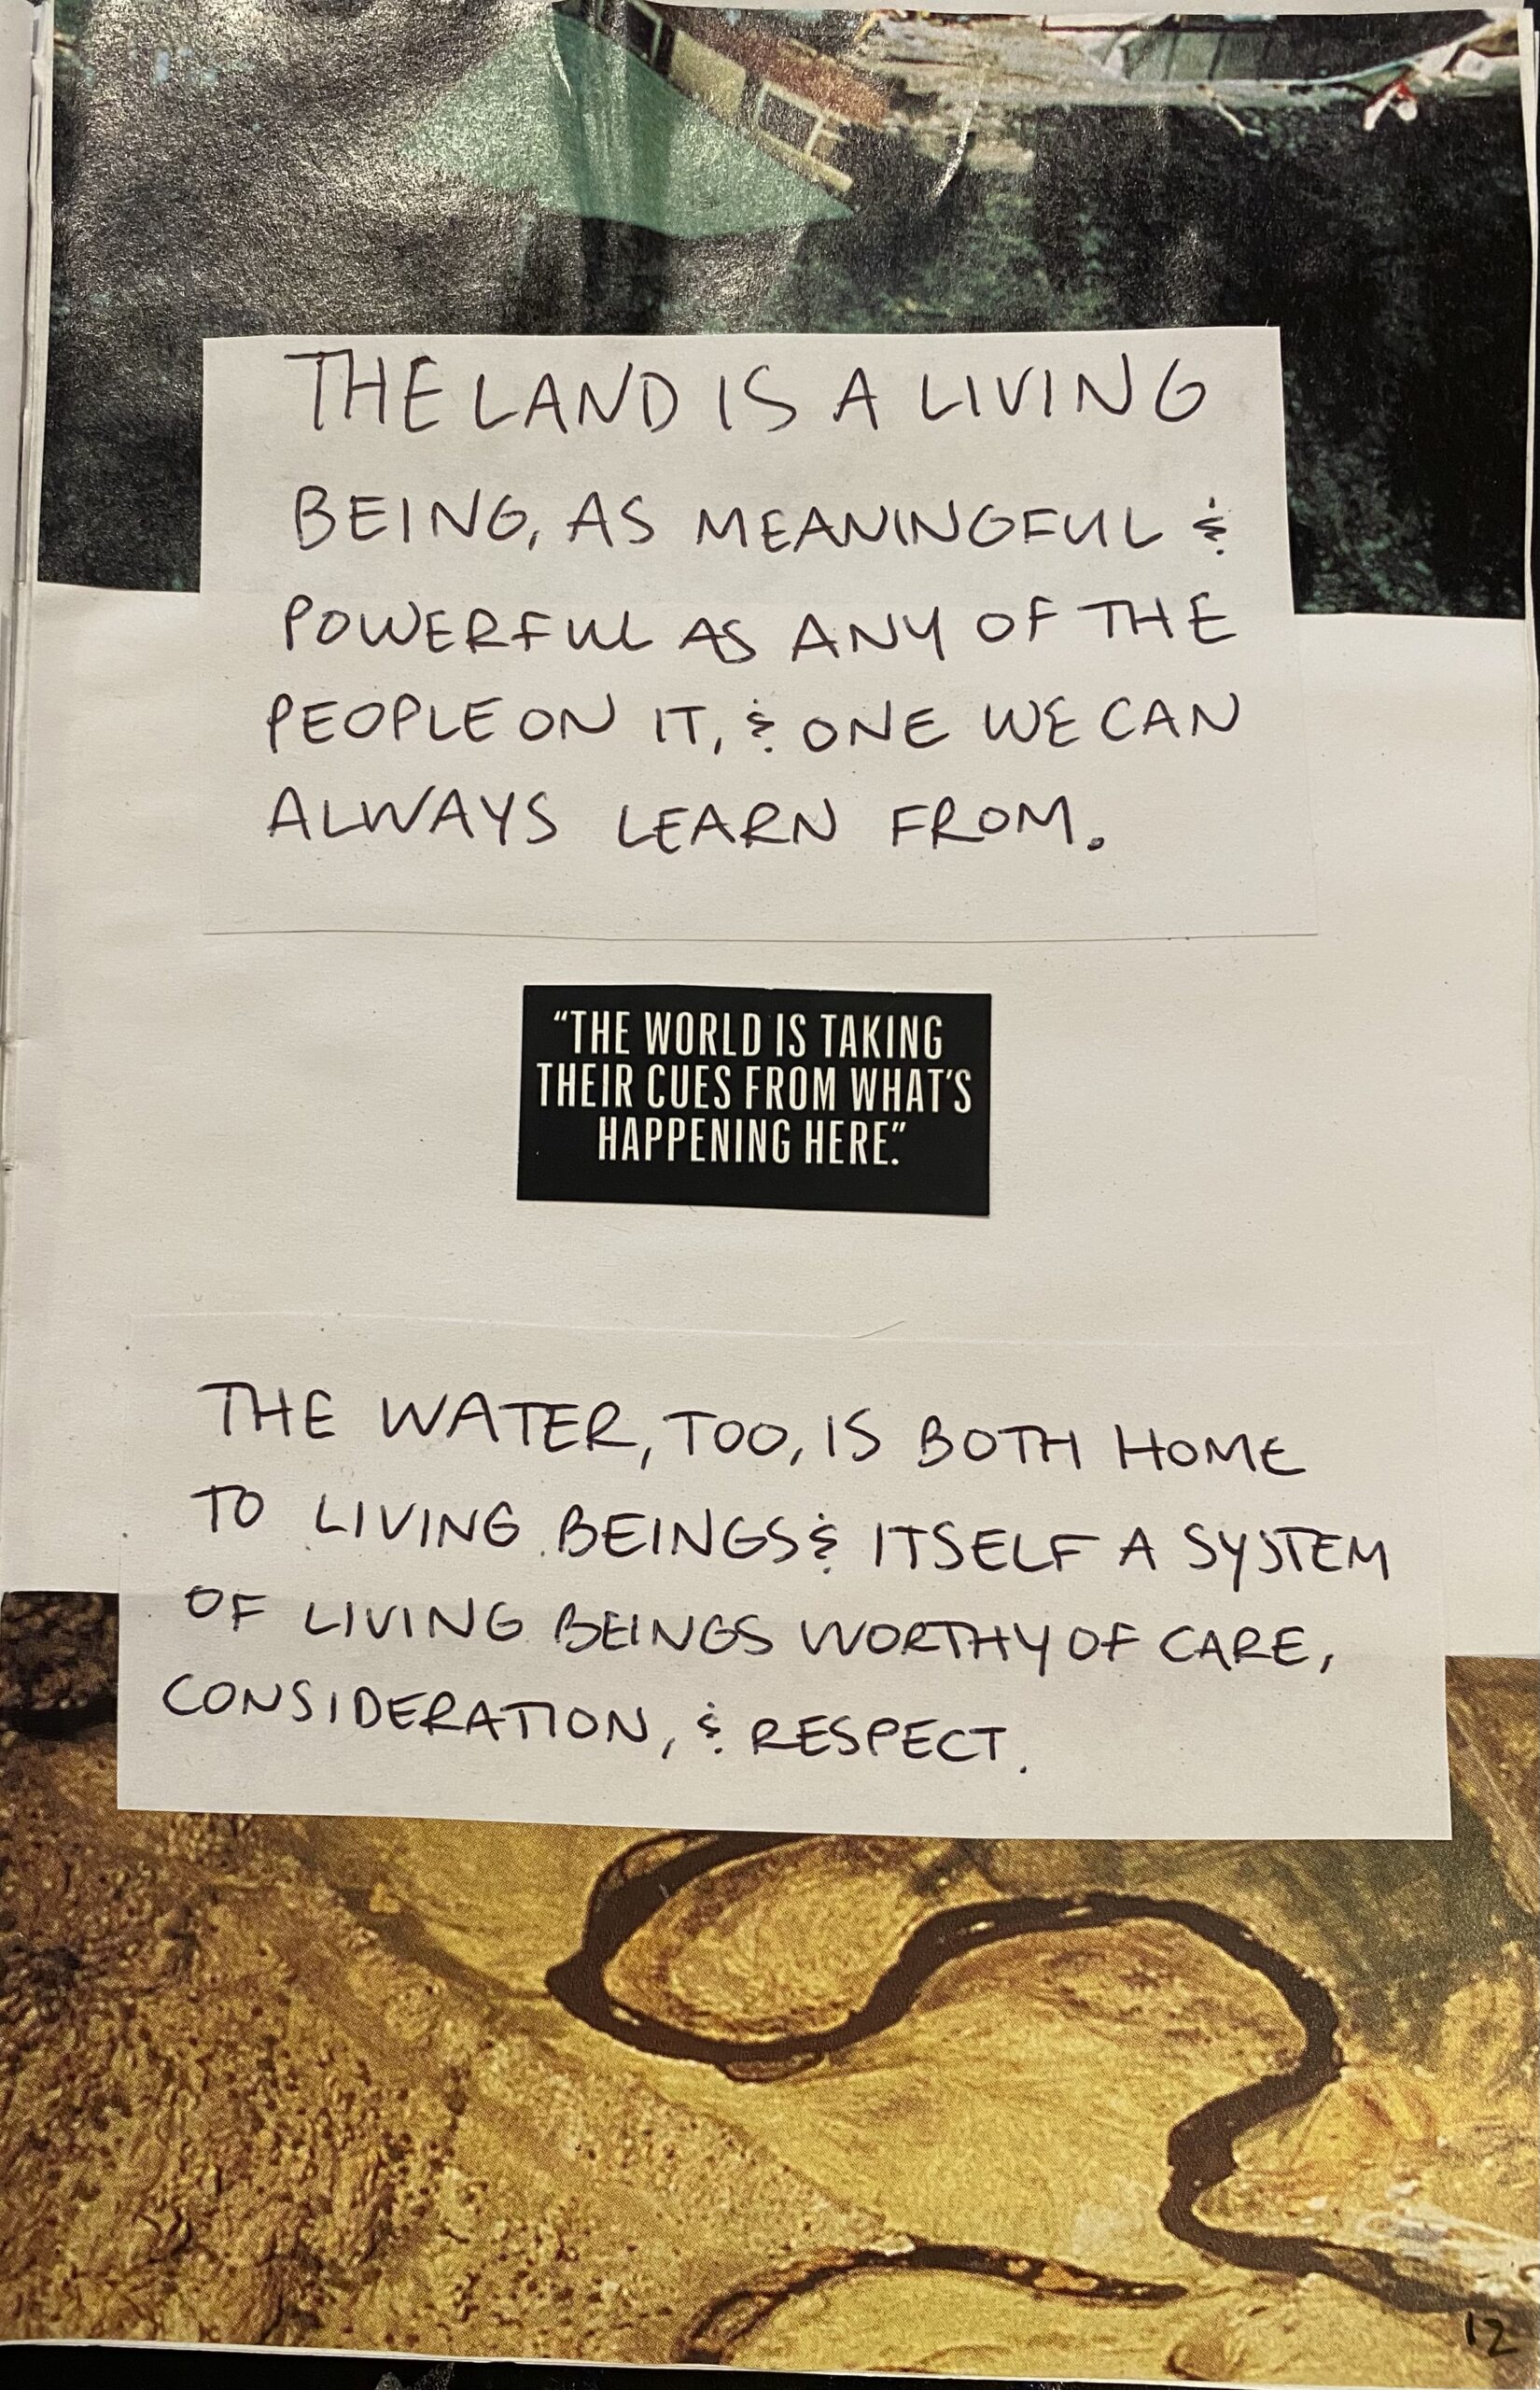 THE LAND IS A LIVING
BEING, AS MEANINGFUL &
POWERFUL AS ANY OF THE
PEOPLE ON IT, & ONE WE CAN
ALWAYS LEARN FROM.
“THE WORLD IS TAKING
THEIR CUES FROM WHAT'S
HAPPENING HERE.”
THE WATER, TOO, IS BOTH HOME
TO LIVING BEINGS & ITSELF A SYSTEM
OF LIVING BEINGS WORTHY OF CARE,
CONSIDERATION, & RESPECT.
12